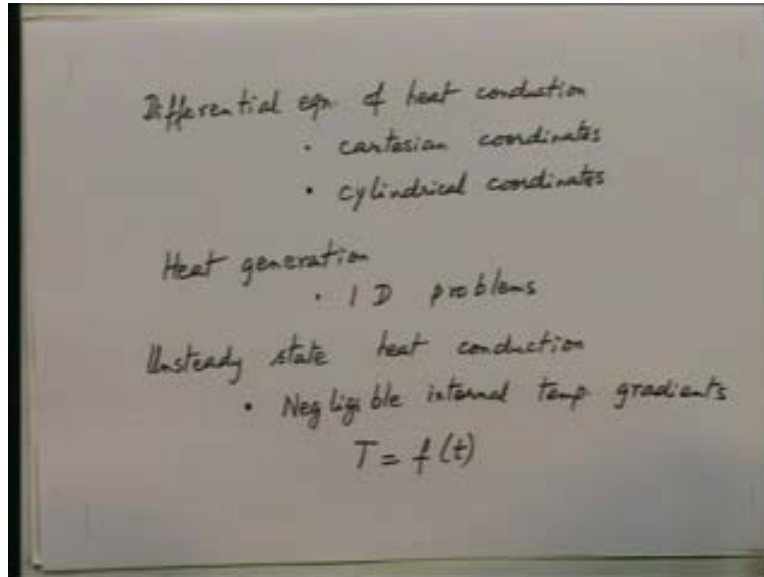 Differential eqn. of heat conduction
• cartesian coordinates
• cylindrical coordinates
Heat generation
• 1 D problems
Unsteady state heat conduction
• Negligible internal temp. gradients
T = f(t)